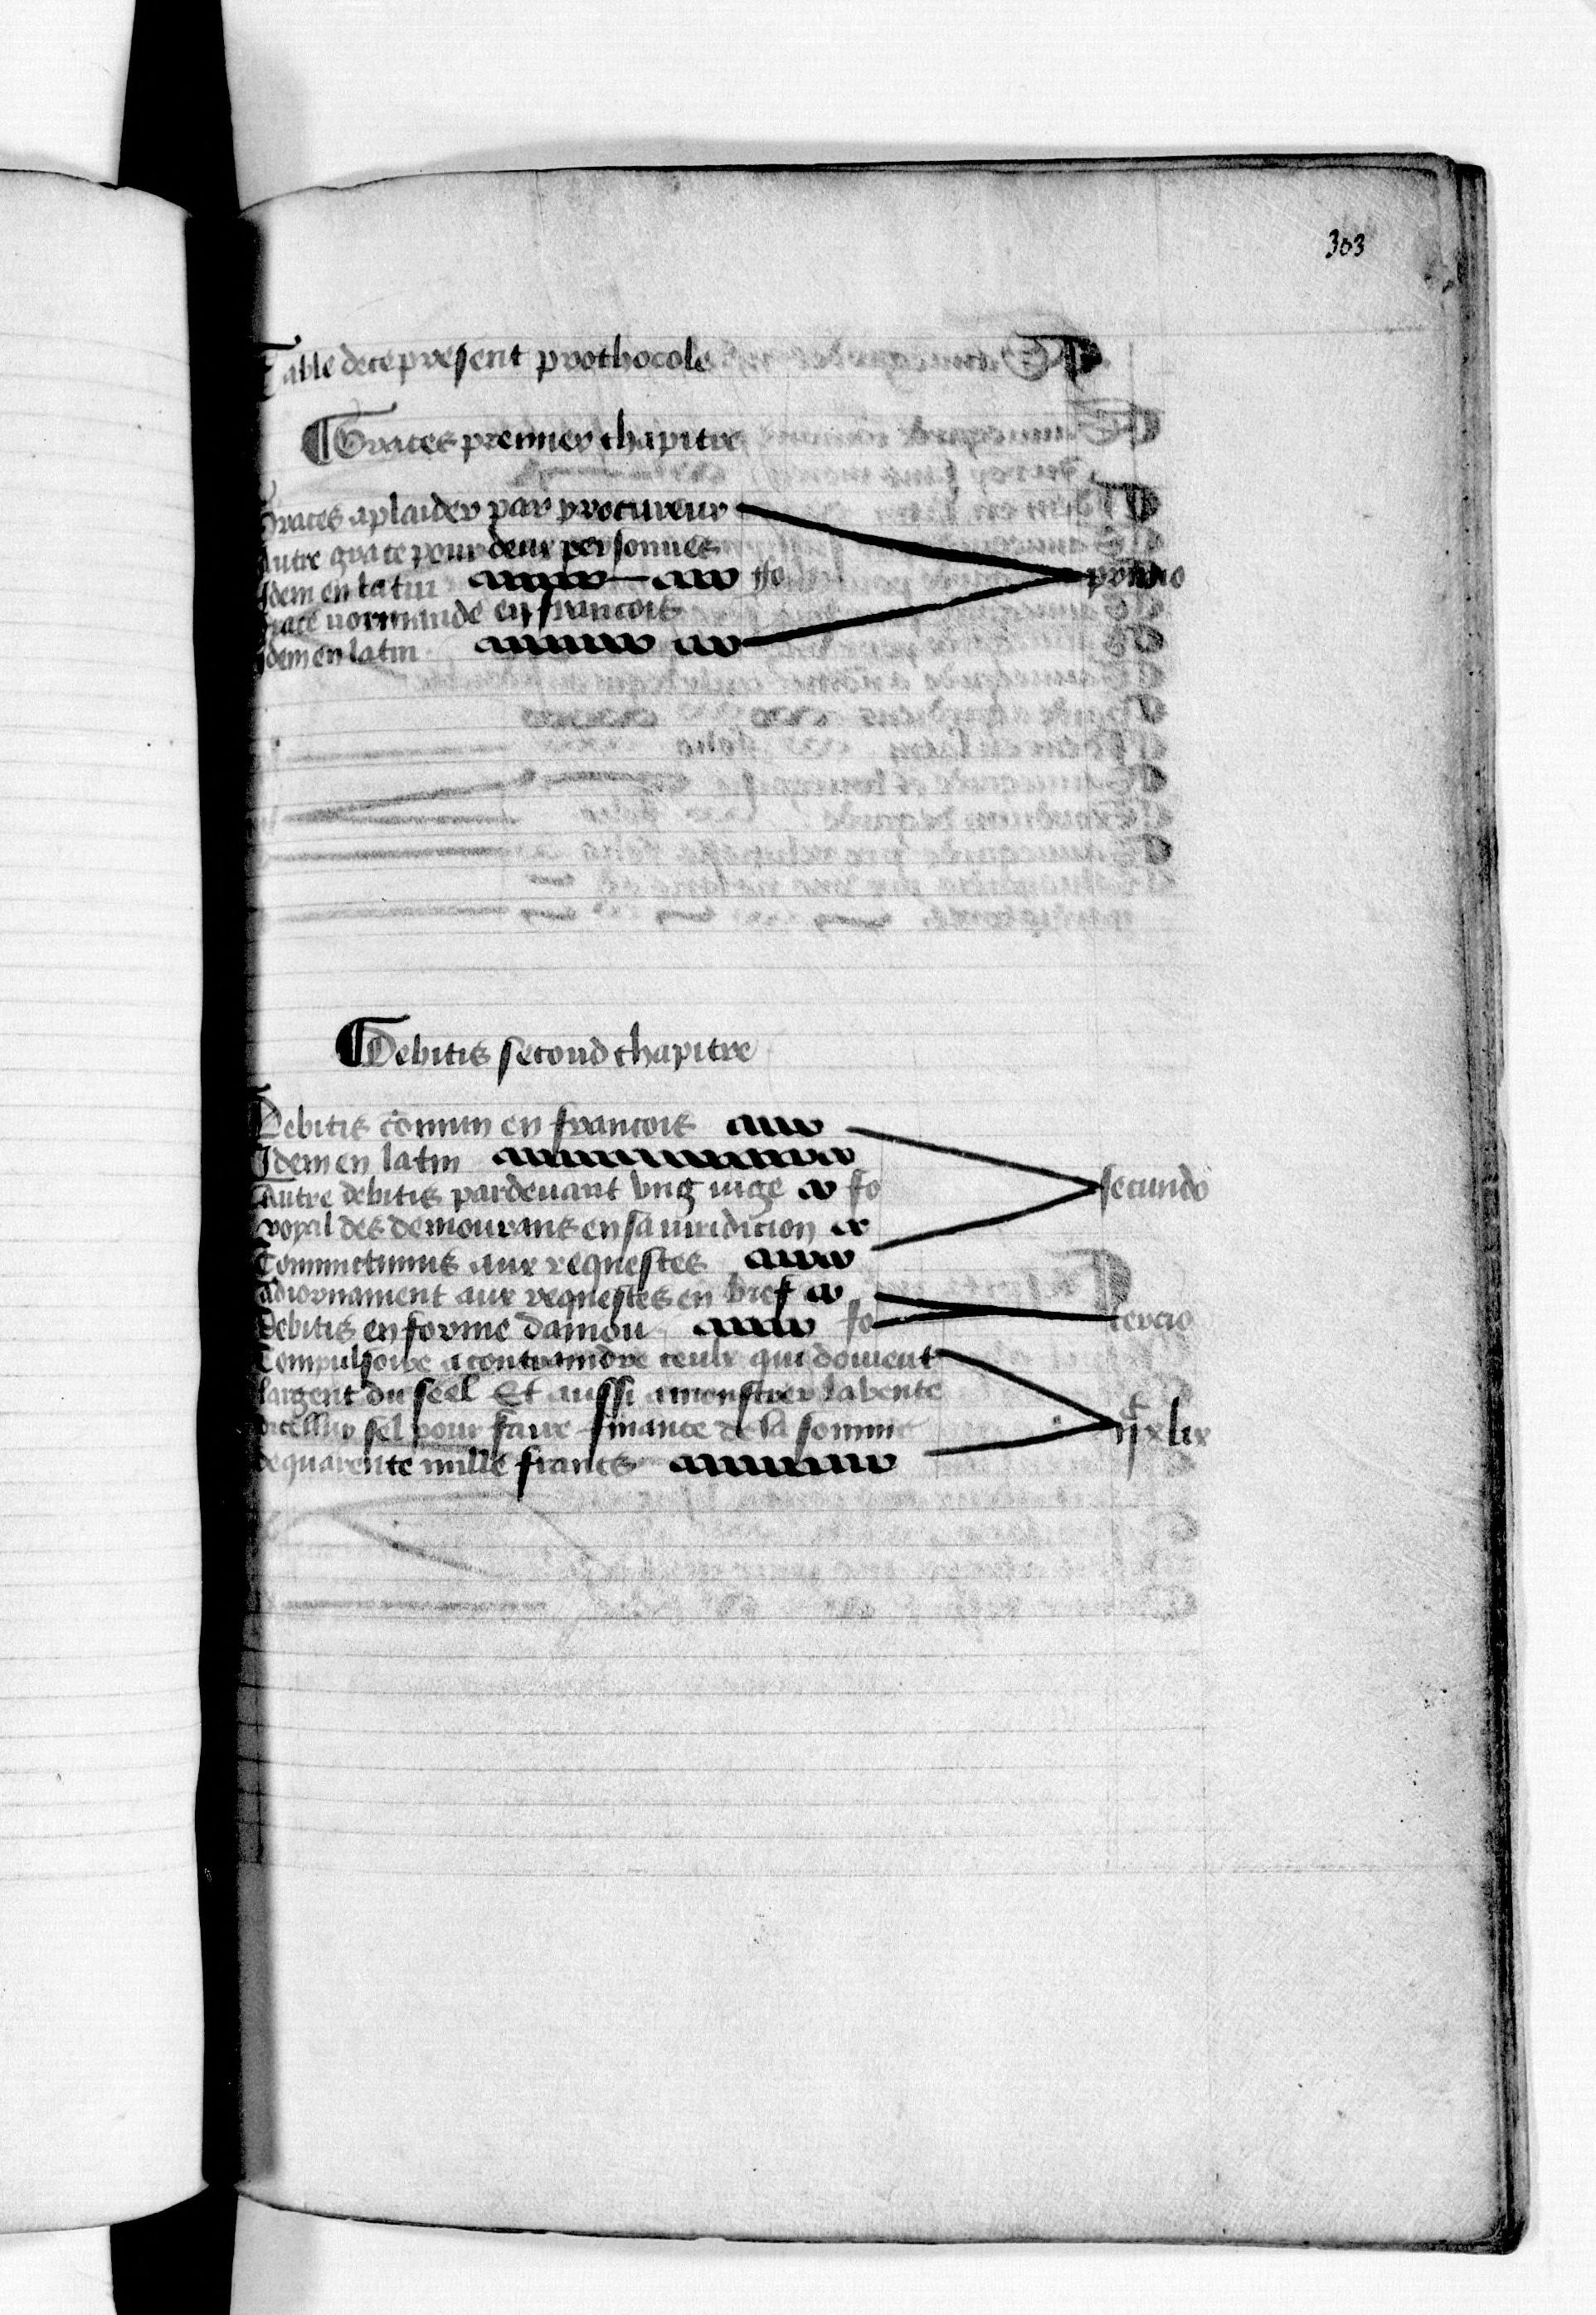 303
Table de ce present prothocole
Graces premier chapitre
Graces a plaider par procureur
Autre grace pour deux personnes
Idem en latin fo primo
Grace normande en francois
Idem en latin
Debitis second chapitre
Debitis comun en francois
Idem en latin
Autre debitis pardevant ung iuge fo secundo
royal des demourans en sa iuridicion
Committimus aux requestes
Adiornament aux requestes en bref
Debitis en forme daniou fo tercio
Compulsoire a contraindre ceulx qui doivent
largent du seel Et aussi a monstrer la vente
dicelluy sel pour faire finance de la somme iiᶜxlix
de quarente mille francs